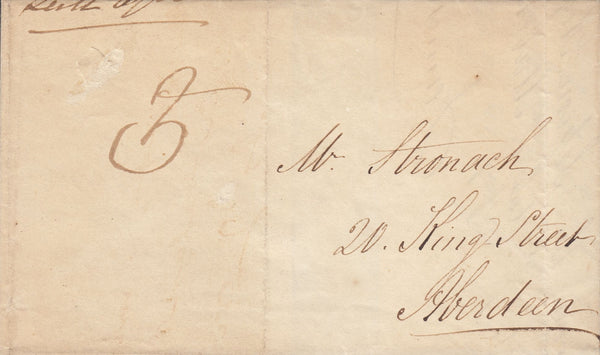 Mr. Stronach
20. King Street
Aberdeen